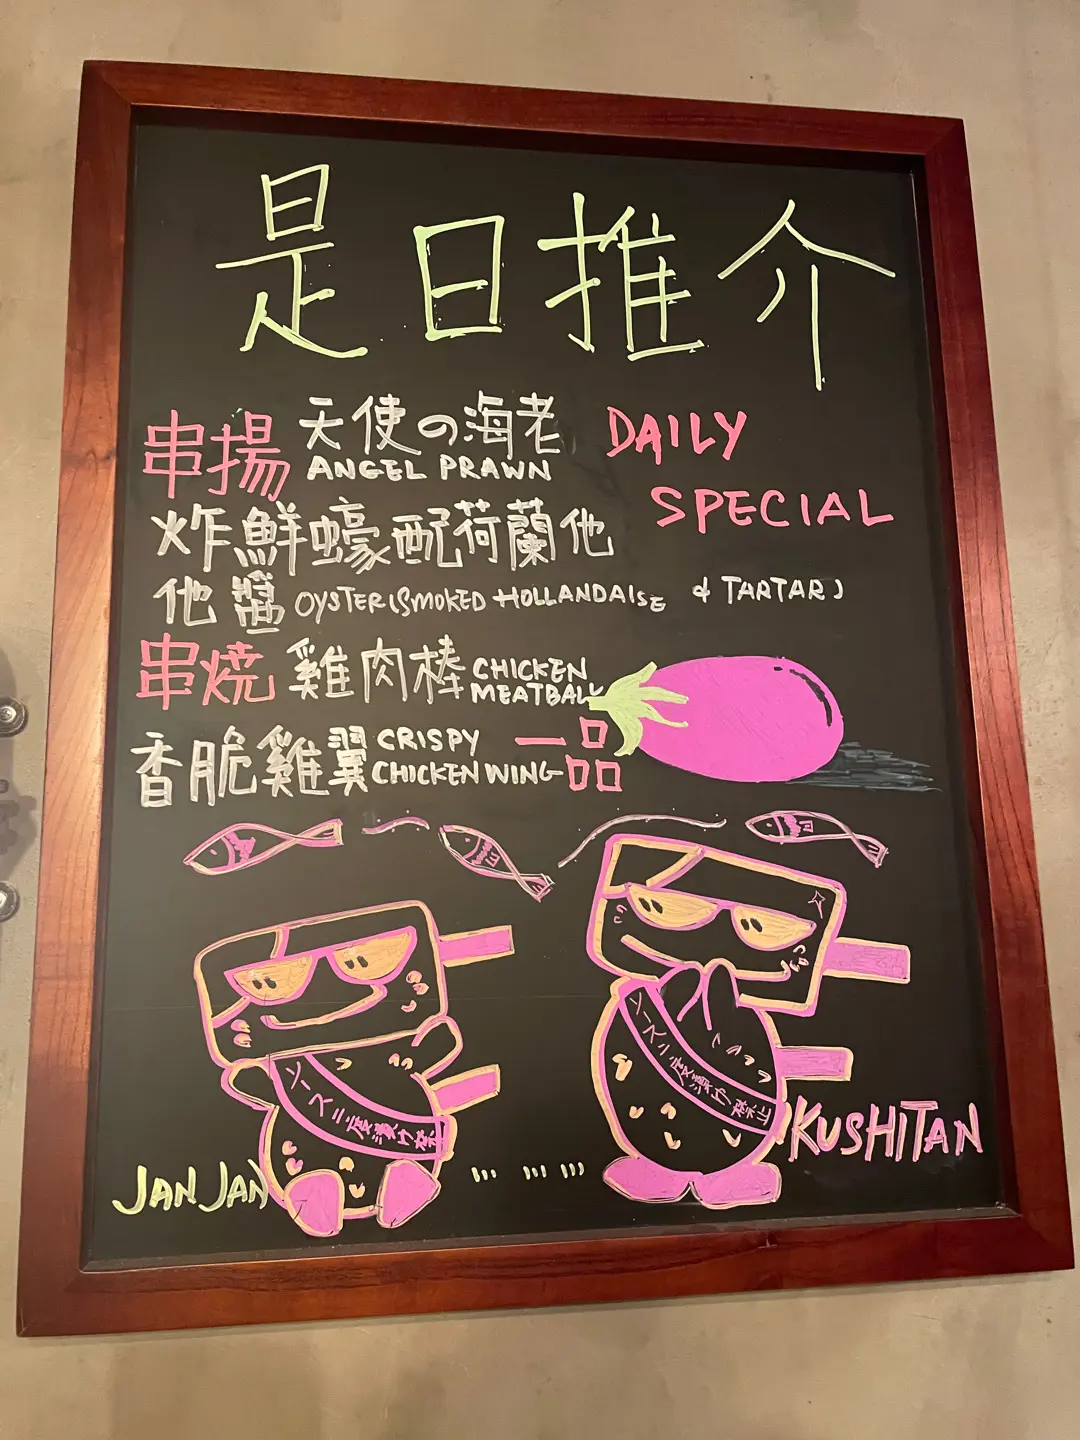 是日推介
串揚 天使の海老
ANGEL PRAWN
DAILY
SPECIAL
炸鮮蠔配荷蘭他
他醬 OYSTER (SMOKED HOLLANDAISE & TARTAR)
串焼 雞肉棒 CHICKEN
MEATBALL
香脆雞翼 CRISPY
CHICKEN WING
一品
ソース二度漬け禁
ソース二度漬け禁止
KUSHITAN
JAN JAN